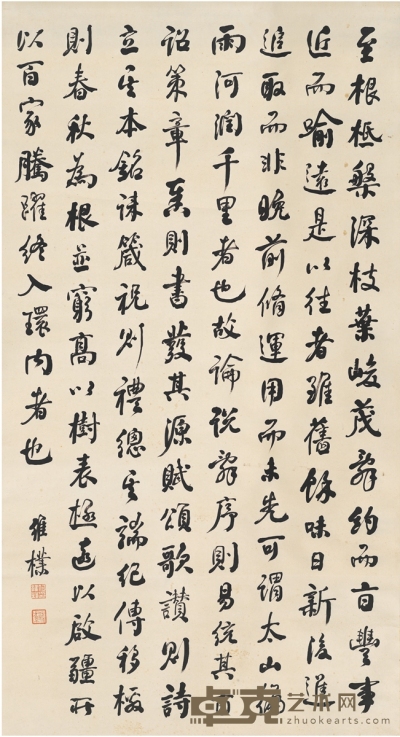 至根柢槃深枝葉峻茂辭約而旨豐事
近而喻遠是以往者雖舊餘味日新後進
追取而非晚前脩運用而未先可謂太山徧
雨河潤千里者也故論說辭序則易統其首
詔策章奏則書發其源賦頌歌讚則詩
立其本銘誄箴祝則禮總其端紀傳移檄
則春秋為根並窮高以樹表極遠以啟疆所
以百家騰躍終入環內者也
維樸
卓克艺术网
zhuokearts.com